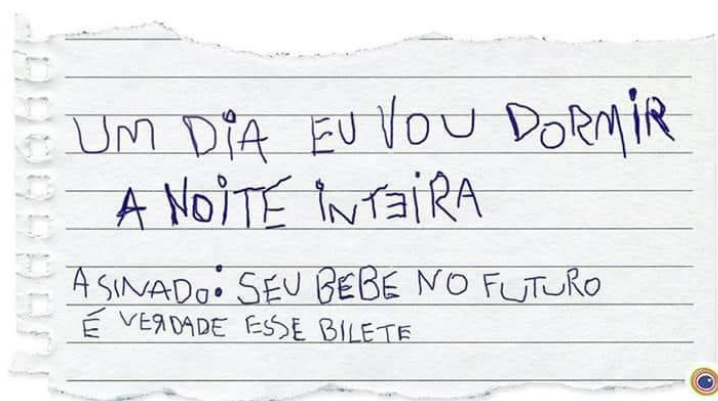 UM DIA EU VOU DORMIR
A NOITE INTEIRA
ASINADO: SEU BEBE NO FUTURO
É VERDADE ESSE BILETE